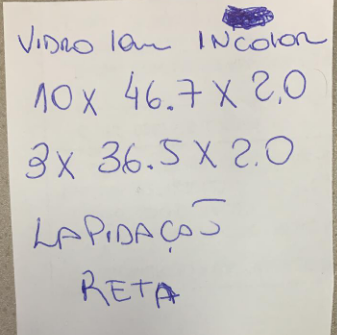 VIDRO 1cm INCOLOR
10 X 46.7 X 2.0
3 X 36.5 X 2.0
LAPIDAÇÃO
RETA